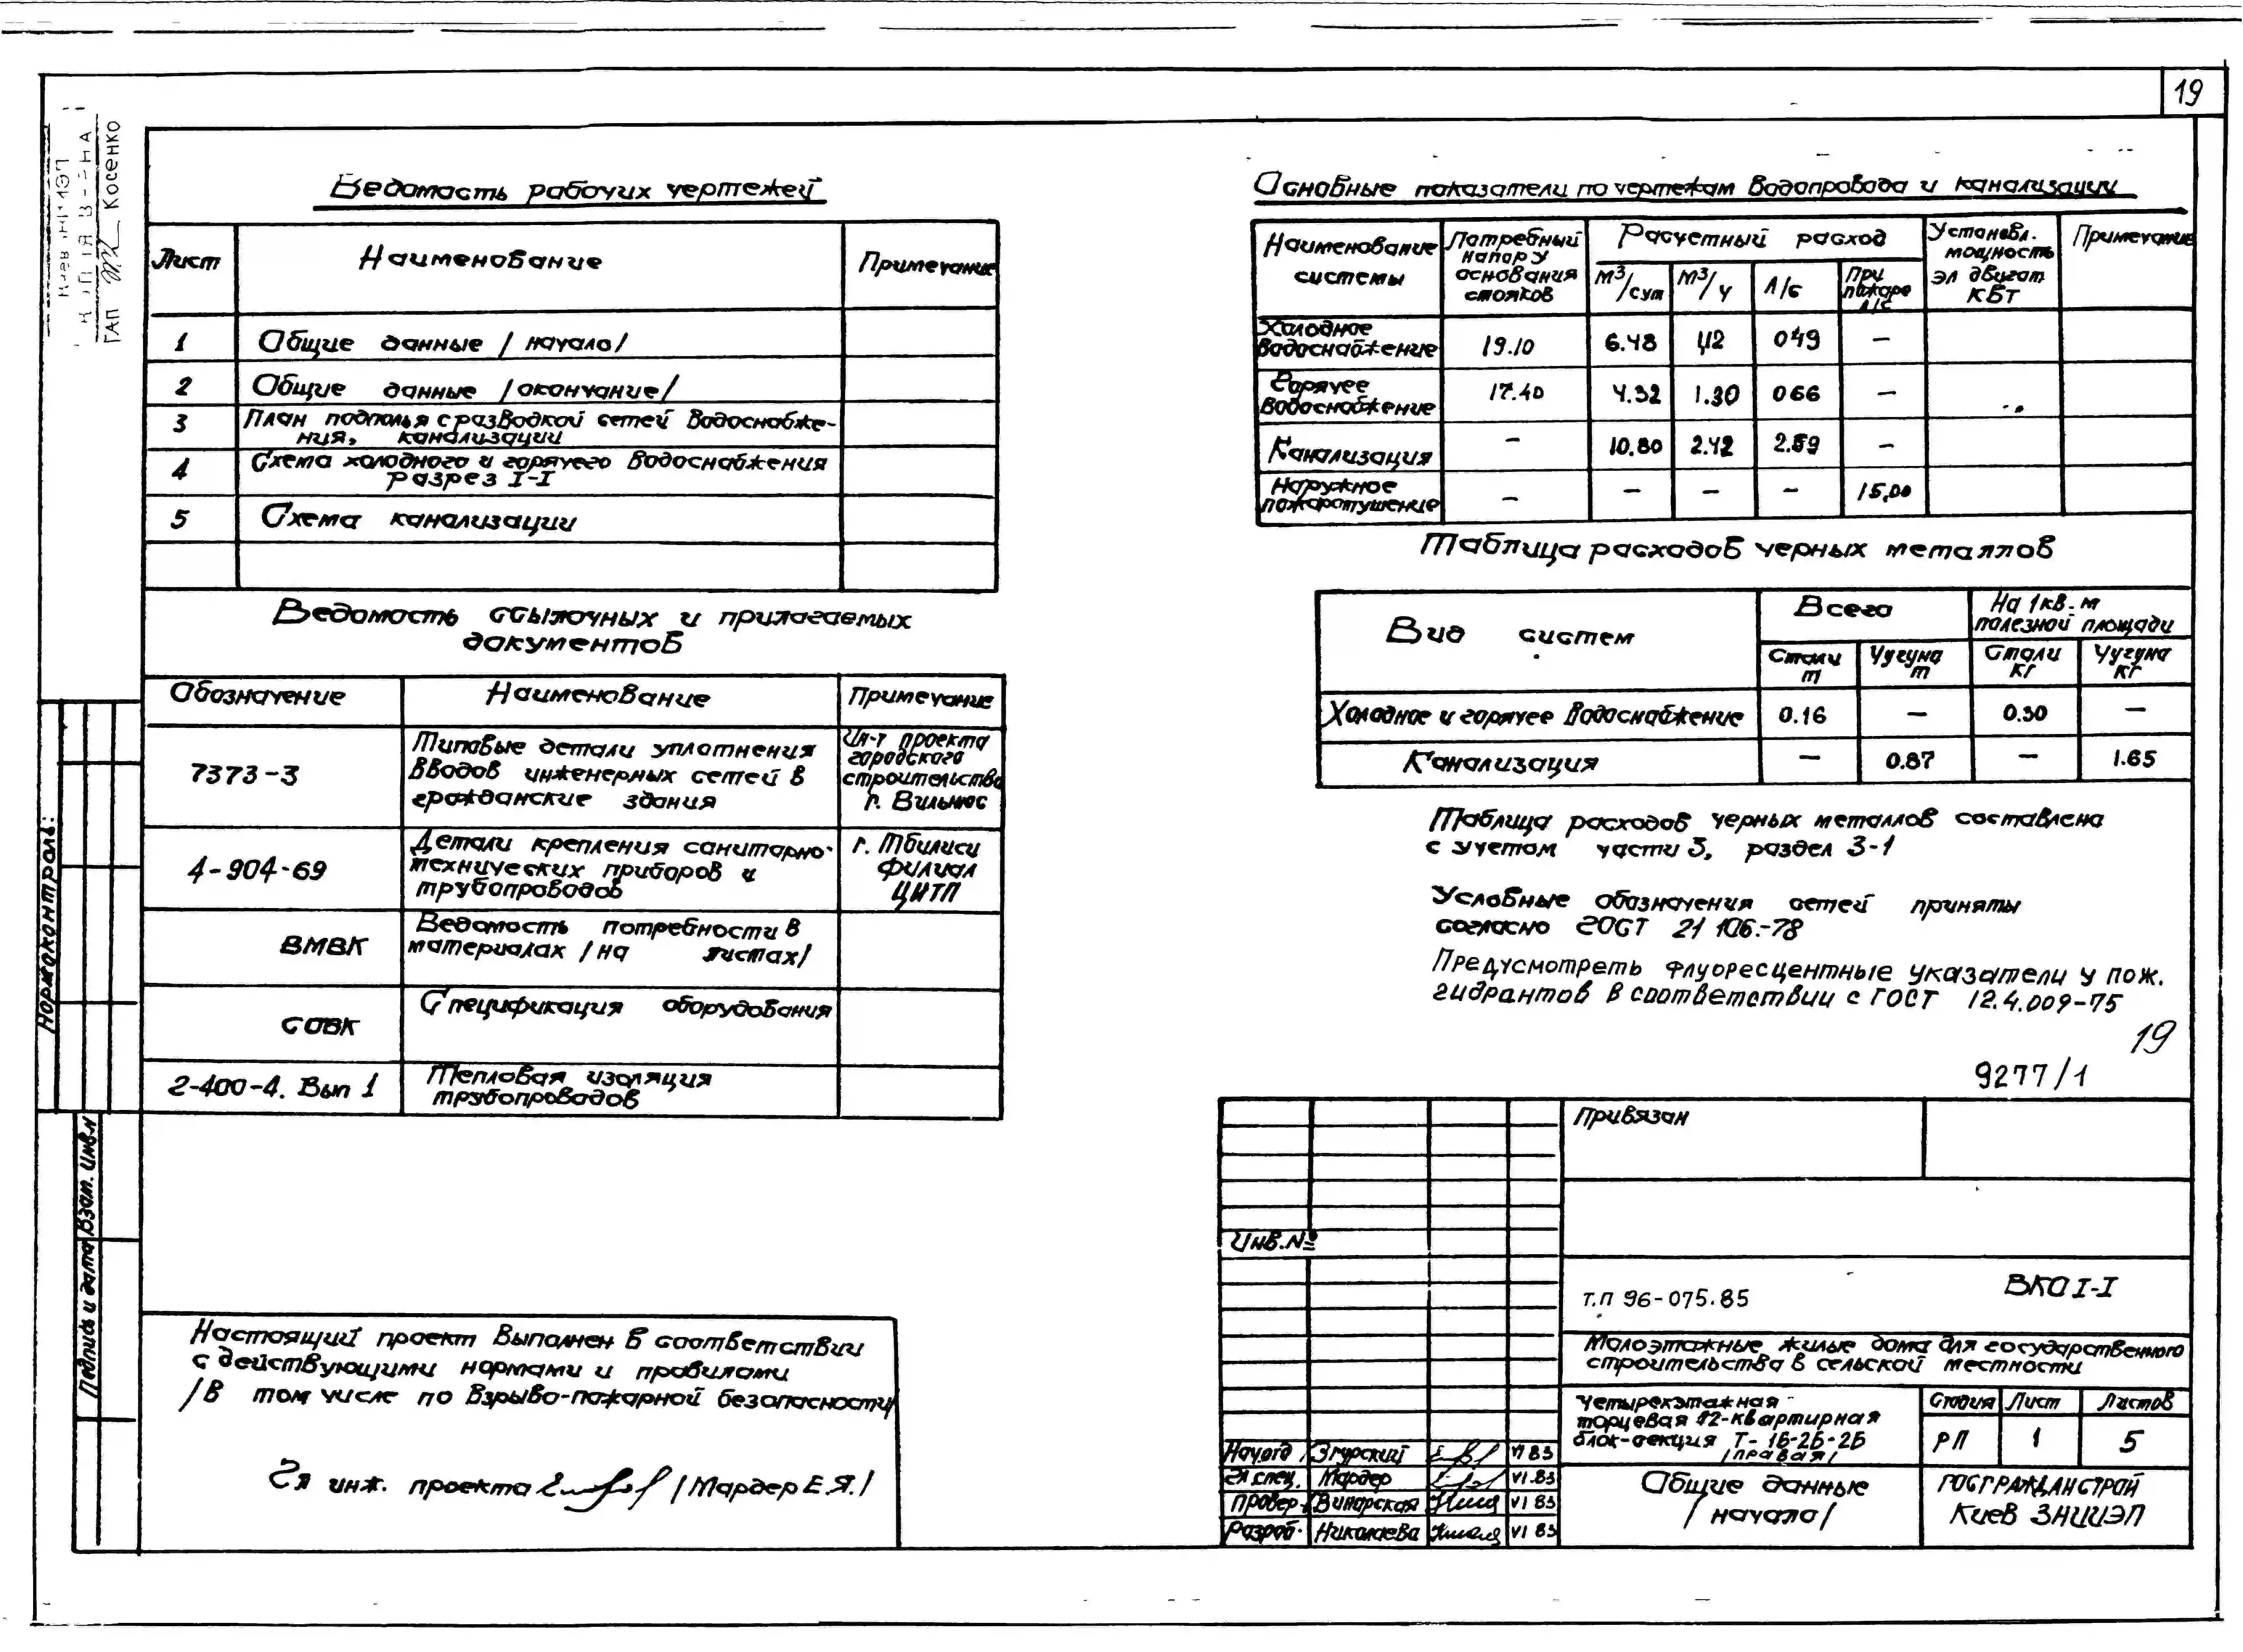 19
КОПІЯ ВІРНА
ГАП Косенко
Ведомость рабочих чертежей
Лист Наименование Примечание
1 Общие данные /начало/
2 Общие данные /окончание/
3 План подполья с разводкой сетей водоснабже-
ния, канализации
4 Схема холодного и горячего водоснабжения
Разрез I-I
5 Схема канализации
Ведомость ссылочных и прилагаемых
документов
Обозначение Наименование Примечание
7373-3 Типовые детали уплотнения вводов инженерных сетей в гражданские здания Ин-т проекта городского строительства г. Вильнюс
4-904-69 Детали крепления санитарно-технических приборов и трубопроводов г. Тбилиси филиал ЦИТП
ВМВК Ведомость потребности в материалах /на листах/
СОВК Спецификация оборудования
2-400-4. Вып 1 Тепловая изоляция трубопроводов
Настоящий проект выполнен в соответствии
с действующими нормами и правилами
/в том числе по взрыво-пожарной безопасности
Гл инж. проекта /Мардер Е.Я./
Нормоконтроль:
Взам. инв.N
Подпись и дата
Основные показатели по чертежам водопровода и канализации
Наименование системы Потребный напор у основания стояков Расчетный расход Установл. мощность эл двигат кВт Примечание
м3/сут м3/ч л/с При пожаре л/с
Холодное водоснабжение 19.10 6.48 1,12 0,49 —
Горячее водоснабжение 17.40 4.32 1.30 0 66 —
Канализация — 10.80 2.42 2.59 —
Наружное пожаротушение — — — — 15,00
Таблица расходов черных металлов
Вид систем Всего На 1кв.м полезной площади
Стали т Чугуна т Стали кг Чугуна кг
Холодное и горячее водоснабжение 0.16 — 0.30 —
Канализация — 0.87 — 1.65
Таблица расходов черных металлов составлена
с учетом части 3, раздел 3-1
Условные обозначения сетей приняты
согласно ГОСТ 21 106.-78
Предусмотреть флуоресцентные указатели у пож.
гидрантов в соответствии с ГОСТ 12.4.009-75
19
9277/1
Привязан
Инв.№
т.п 96-075.85 ВКО I-I
Малоэтажные жилые дома для государственного
строительства в сельской местности
Четырехэтажная
торцевая 12-квартирная
блок-секция Т-1Б-2Б-2Б
/правая/
Стадия Лист Листов
РП 1 5
Нач.отд Згурский VI 83
Гл спец. Мардер VI.83
Провер. Винарская VI 83
Разраб. Николаева VI 83
Общие данные
/начало/
ГОСГРАЖДАНСТРОЙ
Киев ЗНИИЭП